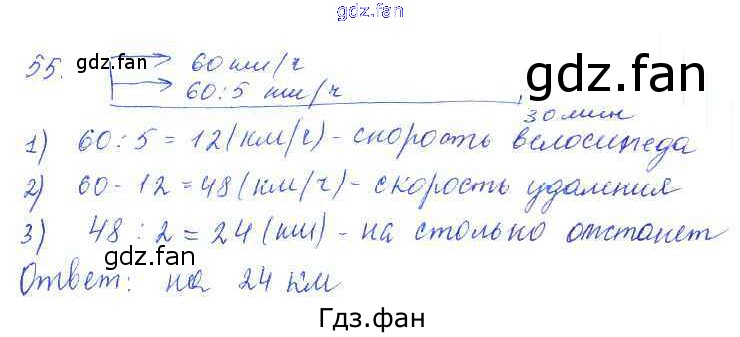 gdz.fan
55. gdz.fan 60 км/ч
60:5 км/ч
gdz.fan
30 мин
1) 60:5=12(км/ч)-скорость велосипеда
2) 60-12=48(км/ч)-скорость удаления
3) 48:2=24(км)-на столько отстанет
gdz.fan
Ответ: на 24 км
Гдз.фан